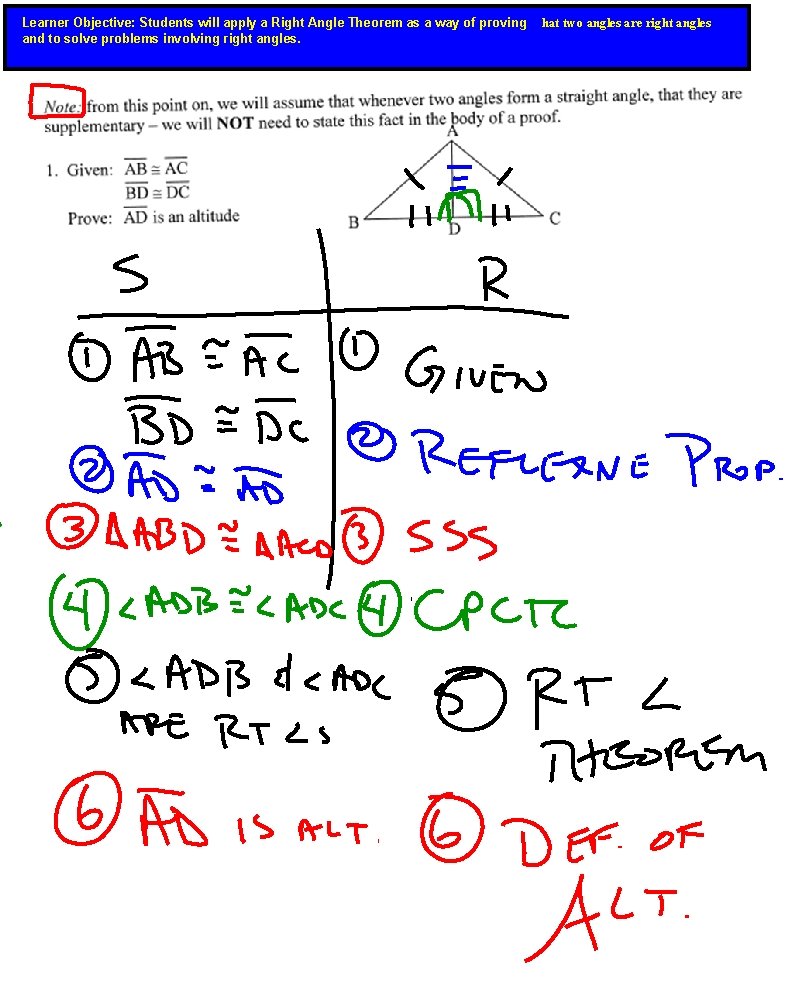 Learner Objective: Students will apply a Right Angle Theorem as a way of proving hat two angles are right angles
and to solve problems involving right angles.
Note: from this point on, we will assume that whenever two angles form a straight angle, that they are
supplementary – we will NOT need to state this fact in the body of a proof.
A
1. Given: AB ≅ AC
BD ≅ DC
Prove: AD is an altitude
B D C
S R
① AB ≅ AC ① GIVEN
BD ≅ DC
② AD ≅ AD ② REFLEXIVE PROP.
③ ΔABD ≅ ΔACD ③ SSS
④ <ADB ≅ <ADC ④ CPCTC
⑤ <ADB & <ADC ⑤ RT <
ARE RT <s THEOREM
⑥ AD IS ALT. ⑥ DEF. OF
ALT.